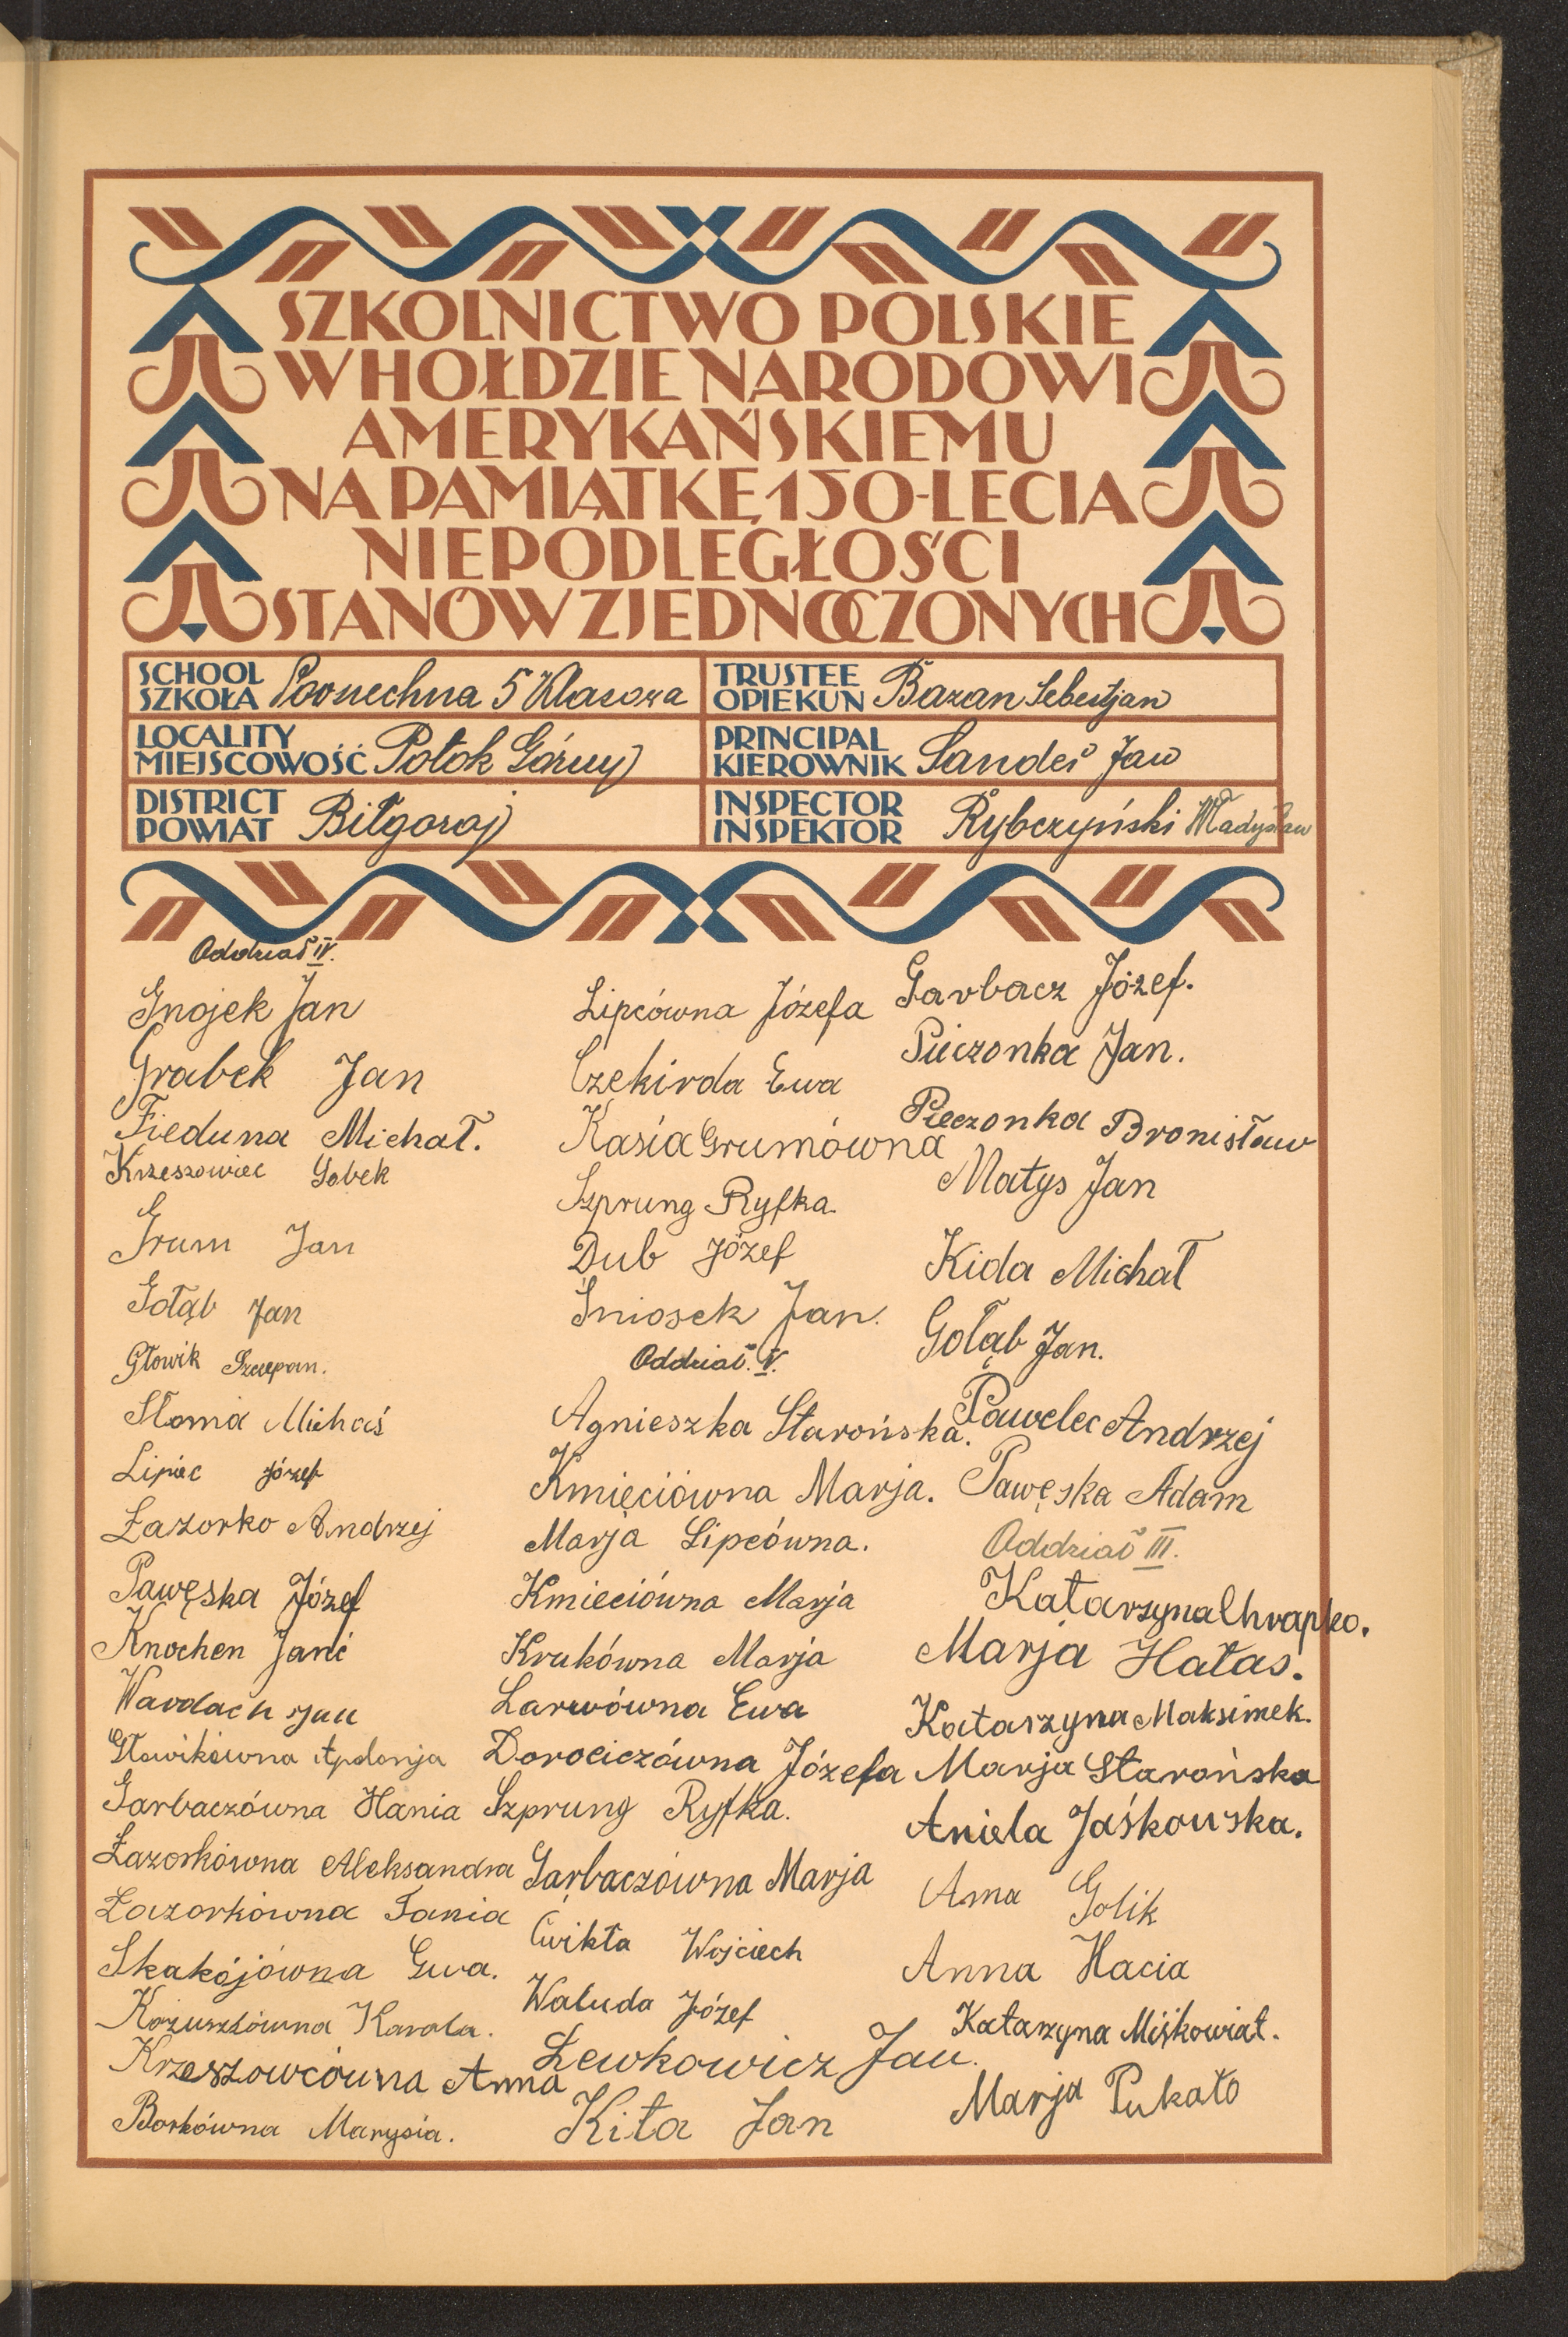 SZKOLNICTWO POLSKIE
W HOŁDZIE NARODOWI
AMERYKAŃSKIEMU
NA PAMIĄTKĘ 150-LECIA
NIEPODLEGŁOŚCI
STANÓW ZJEDNOCZONYCH
SCHOOL
SZKOŁA 5 Klasowa
TRUSTEE
OPIEKUN Bazan Sebestjan
LOCALITY
MIEJSCOWOŚĆ Potok Górny
PRINCIPAL
KIEROWNIK Sander Jan
DISTRICT
POWIAT Biłgoraj
INSPECTOR
INSPEKTOR Rybczyński Władysław
Oddział IV.
Gnojek Jan
Grabek Jan
Fieduna Michał.
Krzeszowiec Gobek
Grum Jan
Gołąb Jan
Głowik Szczepan.
Słoma Michaś
Lipiec Józef
Łazorko Andrzej
Pawęska Józef
Knochen Janć
Wardach Jan
Głowikówna Apolonja
Garbaczówna Hania
Łazorkówna Aleksandra
Łazorkówna Fania
Skakójówna Ewa.
Kożuszkówna Karola.
Krzeszowcówna Anna
Borkówna Marysia.
Lipcówna Józefa
Czekirda Ewa
Kasia Grumówna
Szprung Ryfka.
Dub Józef
Śniosek Jan.
Oddział. V.
Agnieszka Starońska.
Kmięciówna Marja.
Marja Lipcówna.
Kmieciówna Marja
Krukówna Marja
Larwówna Ewa
Dorociczówna Józefa
Szprung Ryfka.
Garbaczówna Marja
Ćwikła Wojciech
Waluda Józef
Lewkowicz Jan.
Kita Jan
Garbacz Józef.
Pieczonka Jan.
Pieczonka Bronisław
Matys Jan
Kida Michał
Gołąb Jan.
Pawelec Andrzej
Pawęska Adam
Oddział III.
Katarzyna Chrapko.
Marja Hałas.
Katarzyna Maksimek.
Marja Starońska
Aniela Jaśkowska.
Anna Golik
Anna Hacia
Katarzyna Miśkowiat.
Marja Pukało